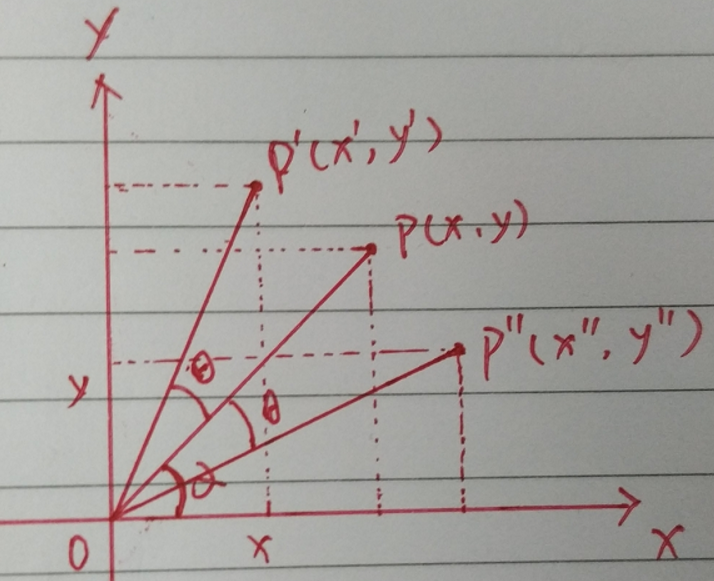 Y
P'(x', y')
P(x, y)
P''(x'', y'')
θ
y
θ
α
O
x
X